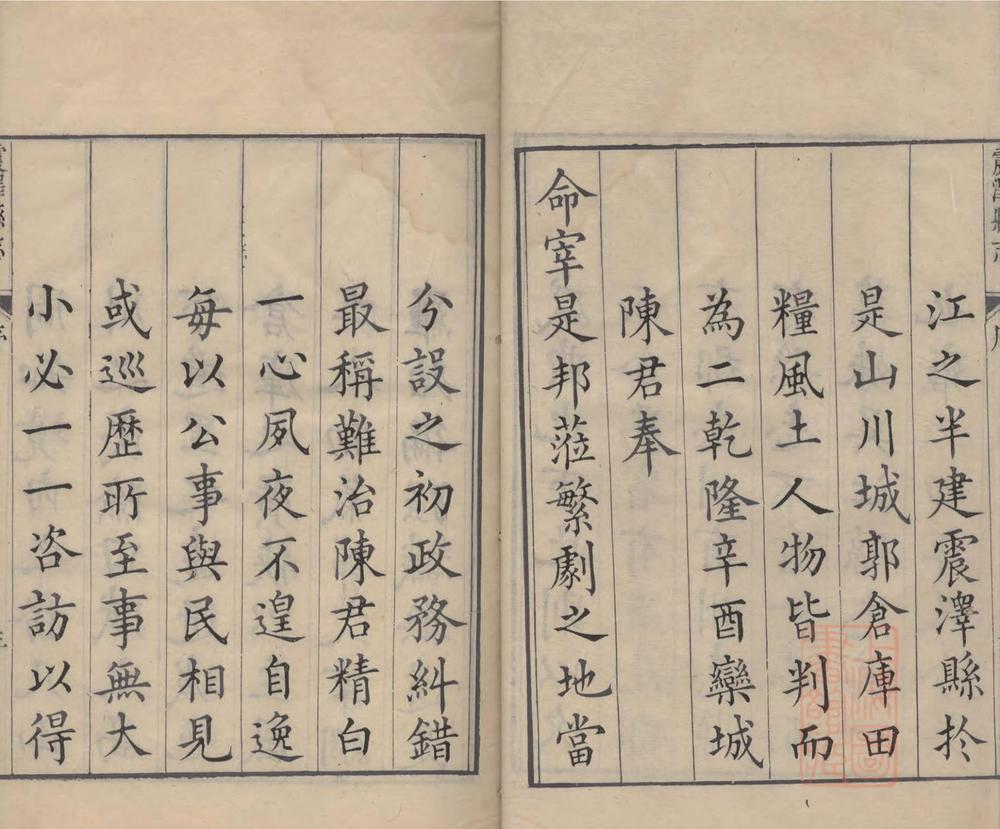 江之半建震澤縣扵
是山川城郭倉庫田
糧風土人物皆判而
為二乾隆辛酉欒城
陳君奉
命宰是邦蒞繁劇之地當
兮設之初政務糾錯
最稱難治陳君精白
一心夙夜不遑自逸
每以公事與民相見
或巡歷所至事無大
小必一一咨訪以得